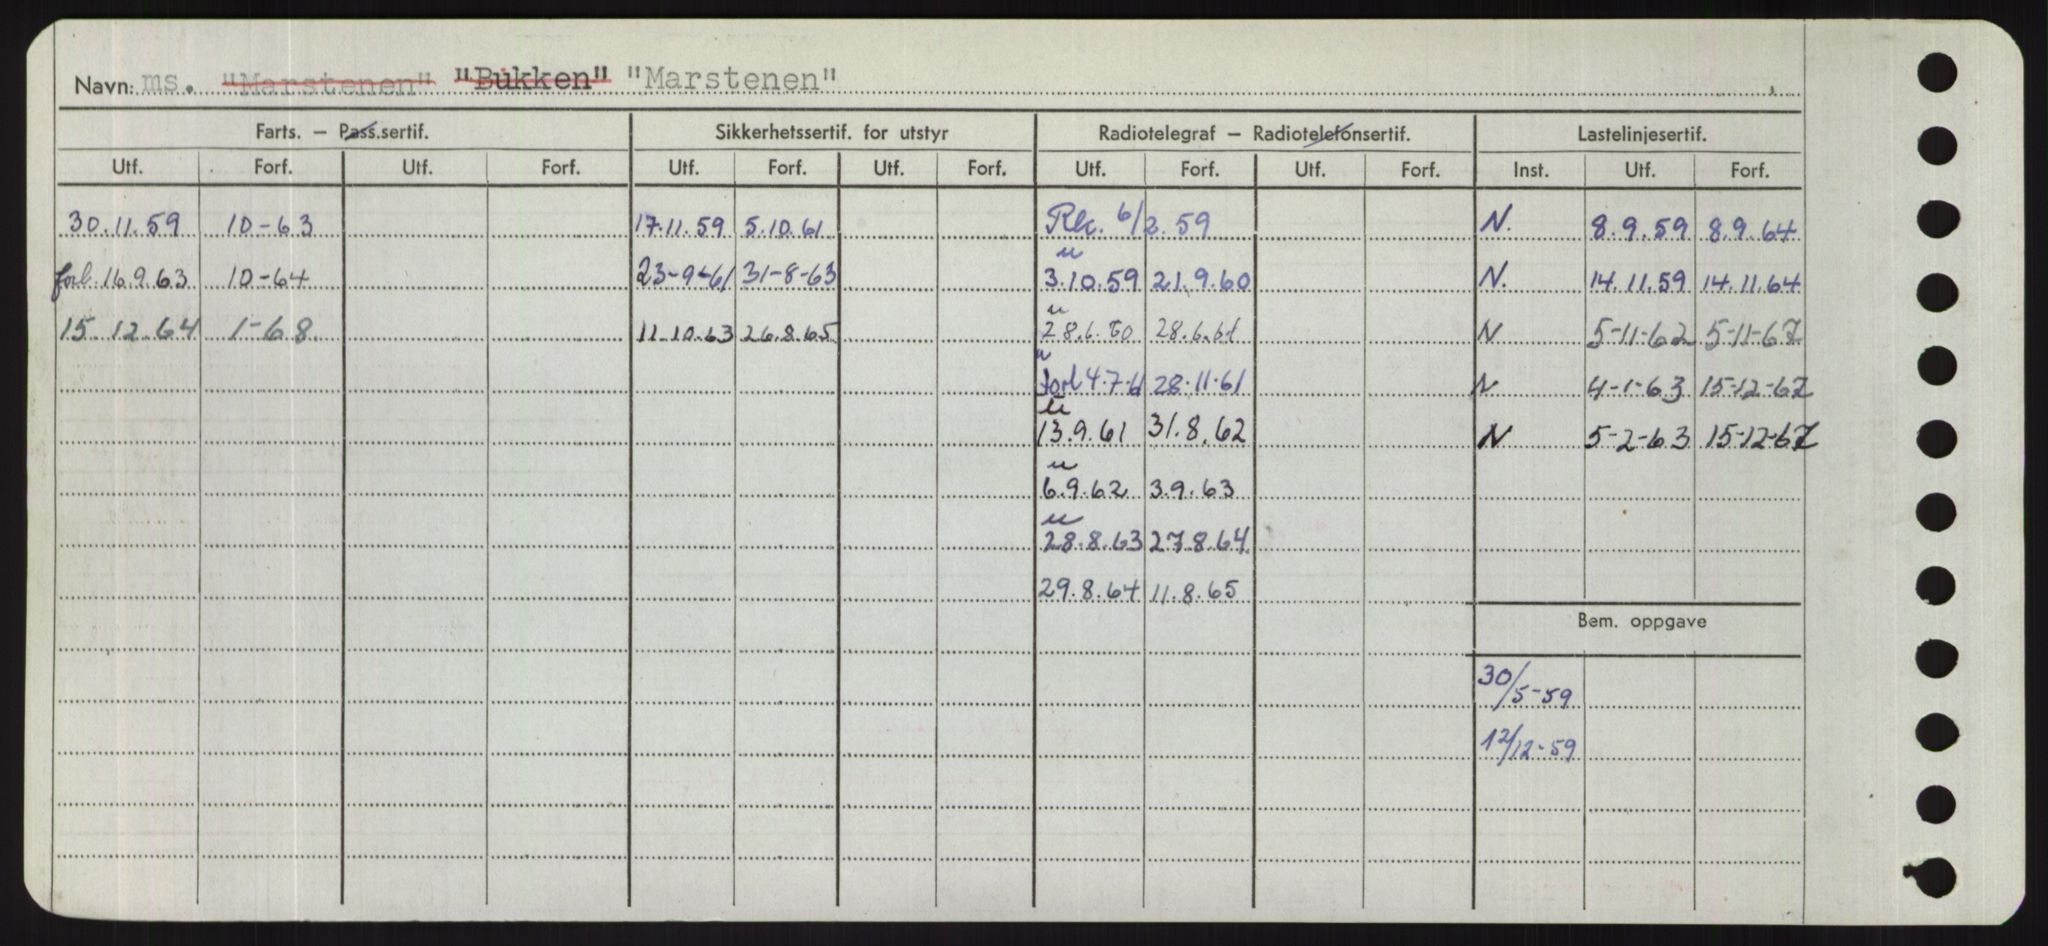 Navn: ms. "Marstenen" "Bukken" "Marstenen"
Farts. – Pass.sertif. Sikkerhetssertif. for utstyr Radiotelegraf – Radiotelefonsertif. Lastelinjesertif.
Utf. Forf. Utf. Forf. Utf. Forf. Utf. Forf. Utf. Forf. Utf. Forf. Inst. Utf. Forf.
30.11.59 10-63 17.11.59 5.10.61 6/2.59 N. 8.9.59 8.9.64
forl. 16.9.63 10-64 23-9-61 31-8-63 3.10.59 21.9.60 N. 14.11.59 14.11.64
15.12.64 1-68 11.10.63 26.8.65 28.6.60 28.6.61 N 5-11-62 5-11-67
forl 4.7.61 28.11.61 N 4-1-63 15-12-67
13.9.61 31.8.62 N 5-2-63 15-12-67
6.9.62 3.9.63
28.8.63 27.8.64
29.8.64 11.8.65
Bem. oppgave
30/5-59
12/12-59